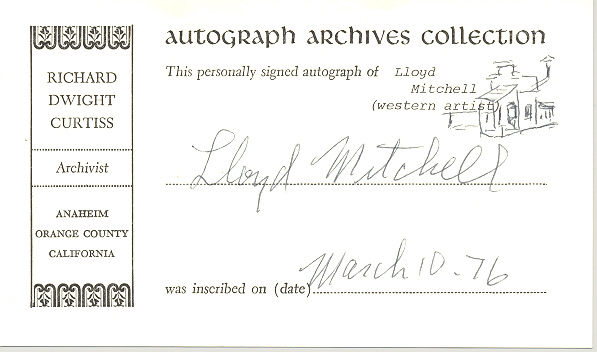 AUTOGRAPH ARCHIVES COLLECTION
RICHARD
DWIGHT
CURTISS
Archivist
ANAHEIM
ORANGE COUNTY
CALIFORNIA
This personally signed autograph of Lloyd
Mitchell
(western artist)
Lloyd Mitchell
March 10-76
was inscribed on (date)